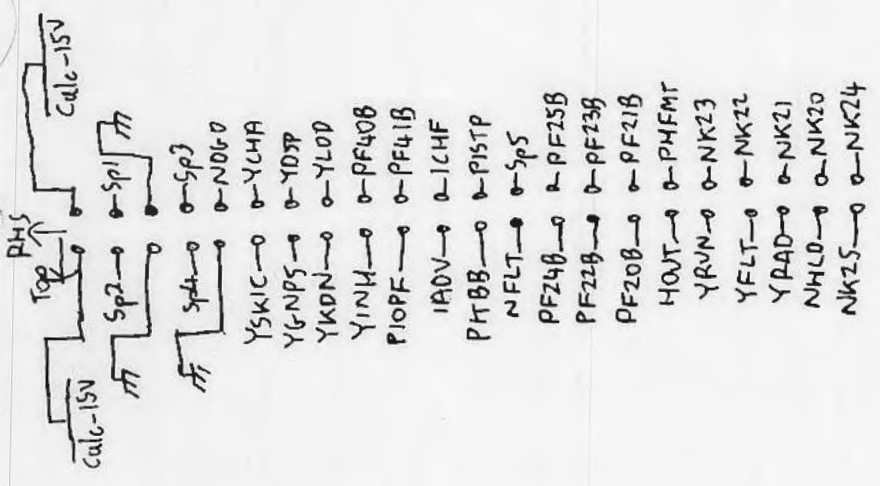 RHS
Top
Calc-15V Calc-15V
Sp2 Sp1
Sp4 Sp3
NOGO
YSKIC YCHA
YGNPS YDSP
YKDN YLOD
YINH PF40B
PIOPF PF41B
IADV ICHF
PKTBB PISTP
NFLT Sp5
PF24B PF25B
PF22B PF23B
PF20B PF21B
HOUT PHFMT
YRUN NK23
YFLT NK22
YRAD NK21
NHLD NK20
NK25 NK24